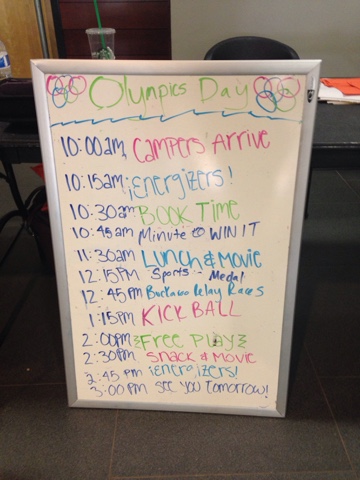 Olympics Day
10:00am Campers Arrive
10:15am ¡Energizers!
10:30am Book Time
10:45am Minute to WIN IT
11:30am Lunch & Movie
12:15PM Sports - Medal
12:45PM Relay Races
1:15PM KICK BALL
2:00PM Free Play
2:30PM Snack & Movie
2:45 PM ¡Energizers!
3:00 PM See you Tomorrow!